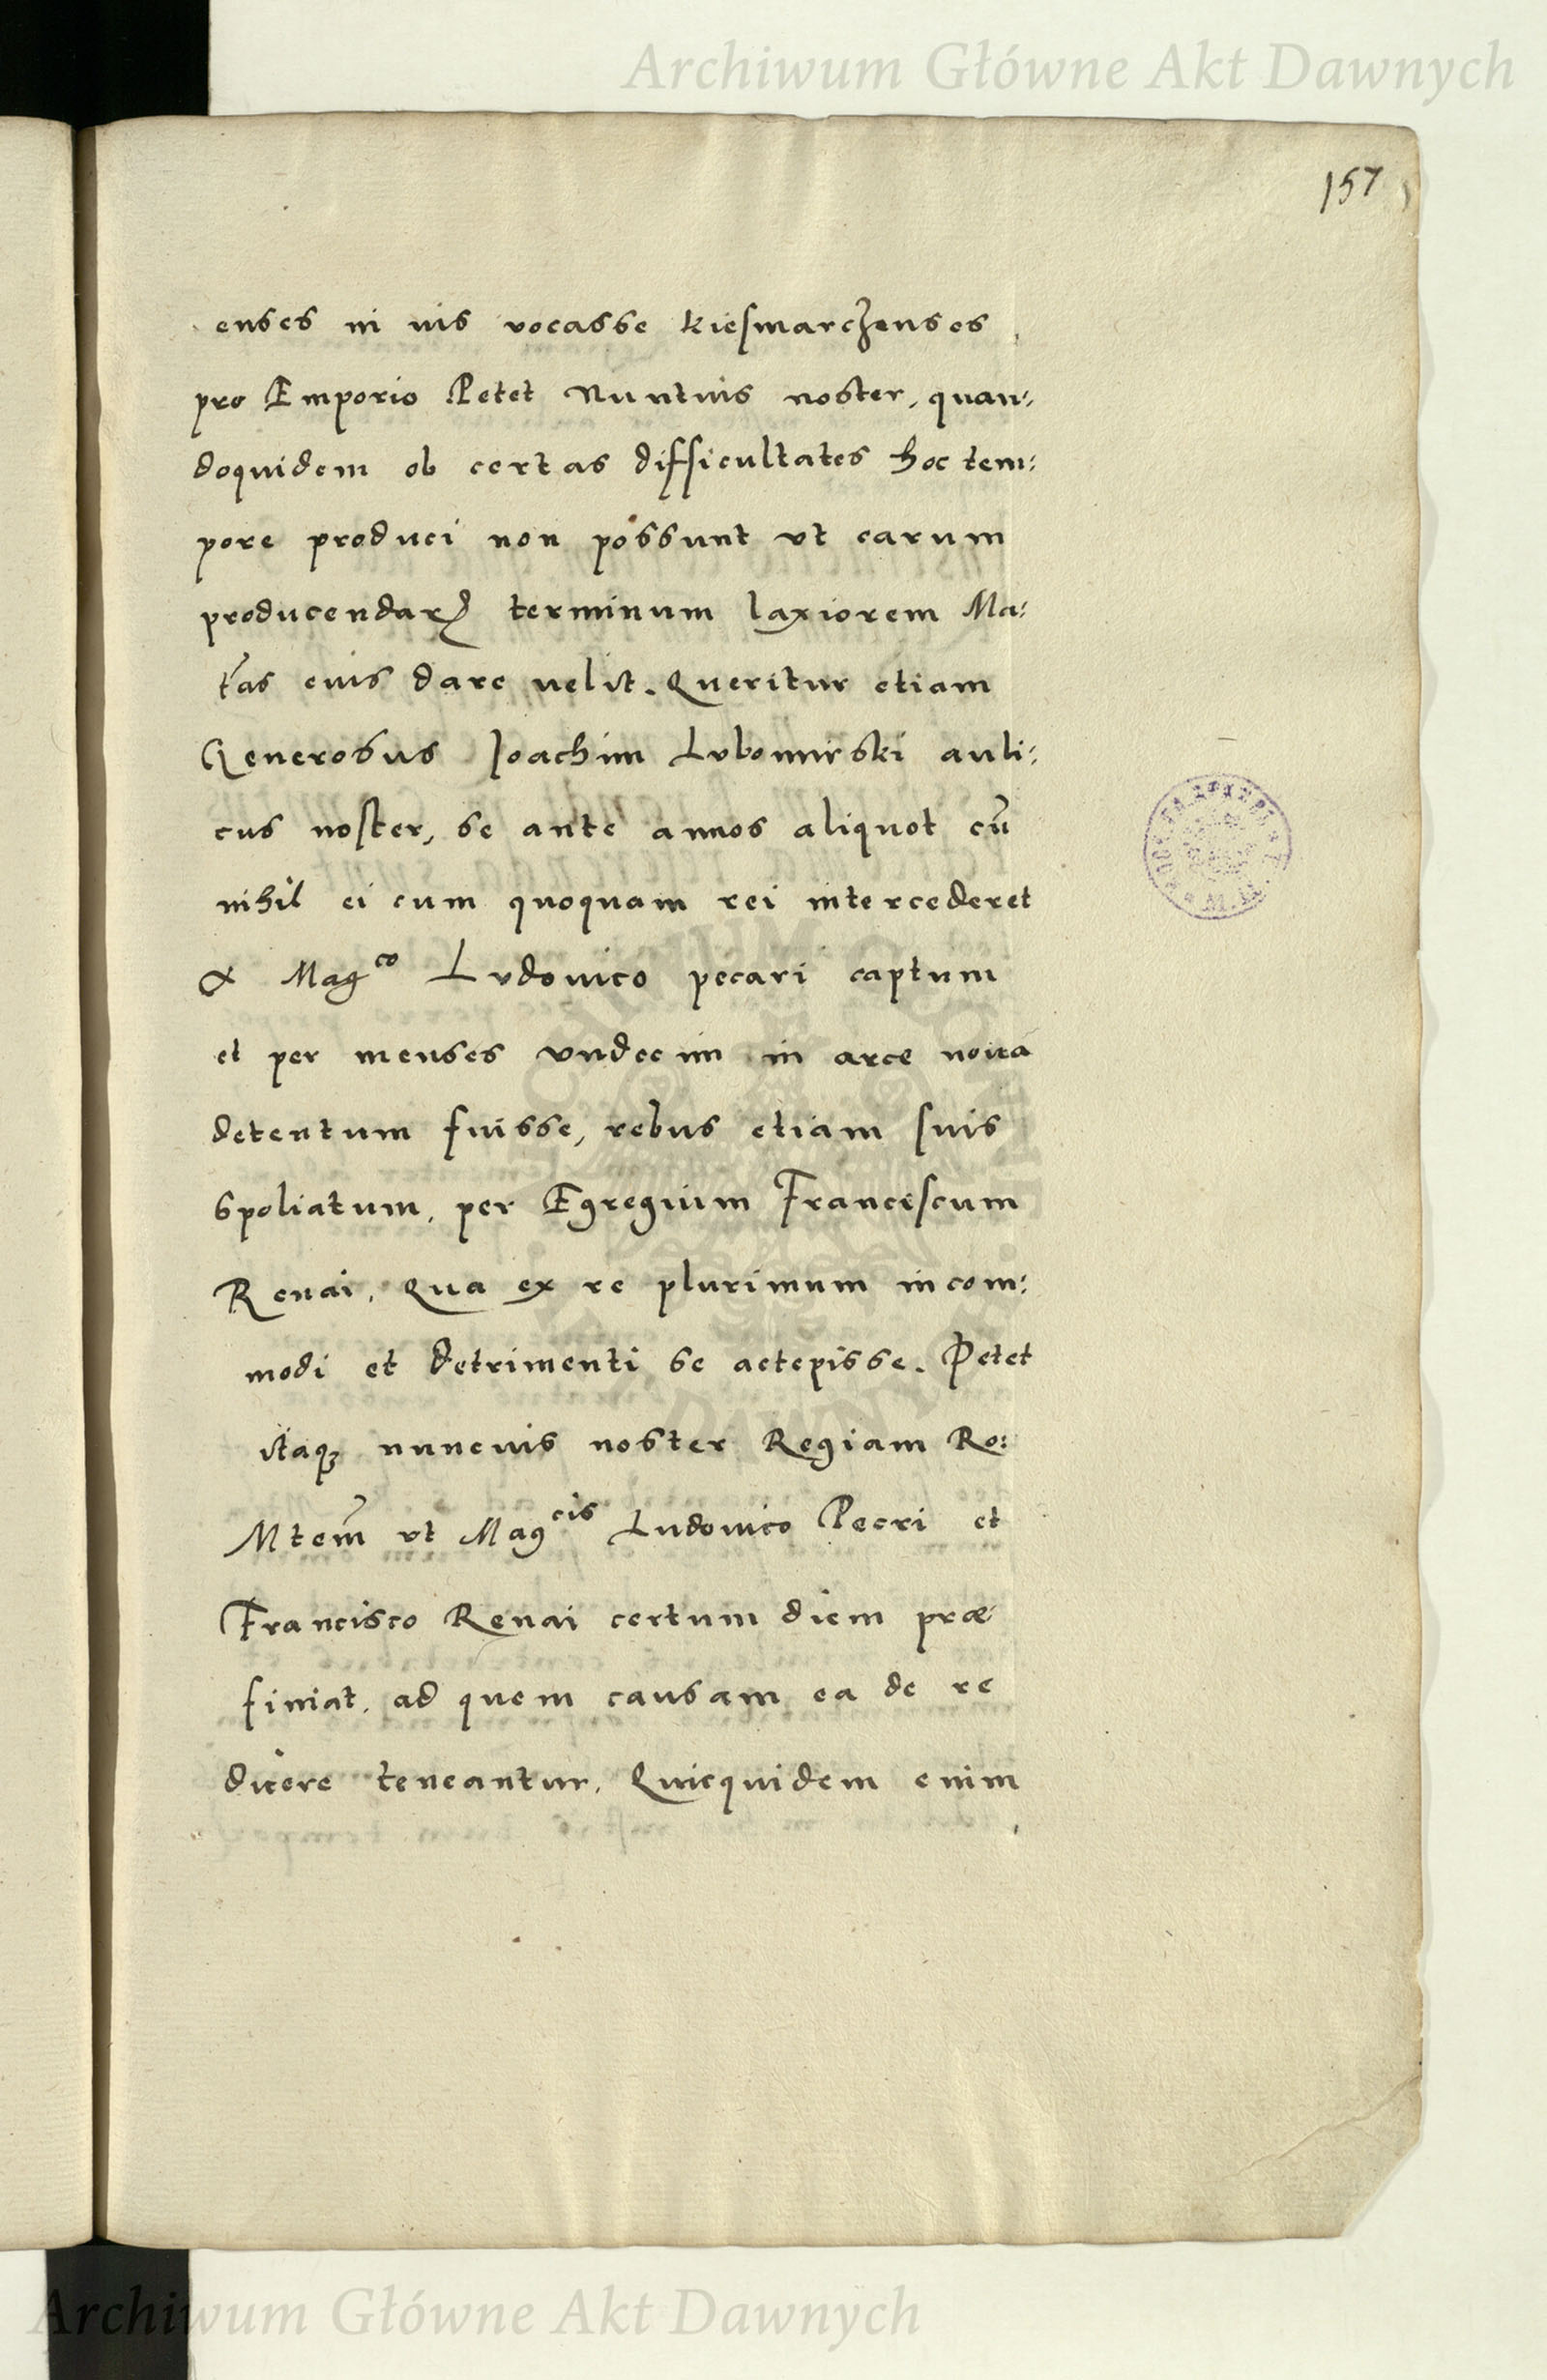 Archiwum Główne Akt Dawnych
157
enses in ius vocasse Kiesmarczenses
pro Emporio Petet Nuntius noster, quan:
doquidem ob certas difficultates hoc tem:
pore produci non possunt vt earum
producendarꝝ terminum laxiorem Ma:
t̃as eius dare uelit. Queritur etiam
Generosus Joachim Lvbomirski auli:
cus noster, se ante annos aliquot cũ
nihil ei cum quoquam rei intercederet
a Mag^co Lvdouico pecari captum
et per menses vndecim in arce noua
detentum fuisse, rebus etiam suis
spoliatum, per Egregium Franciscum
Renai. Qua ex re plurimum incom:
modi et detrimenti se accepisse. Petet
itaqꝫ nuncius noster Regiam Ro:
Mtem̃ vt Mag^cis Ludouico Pecri et
Francisco Renai certum diem præ
finiat, ad quem causam ea de re
dicere teneantur. Quicquidem enim
Archiwum Główne Akt Dawnych